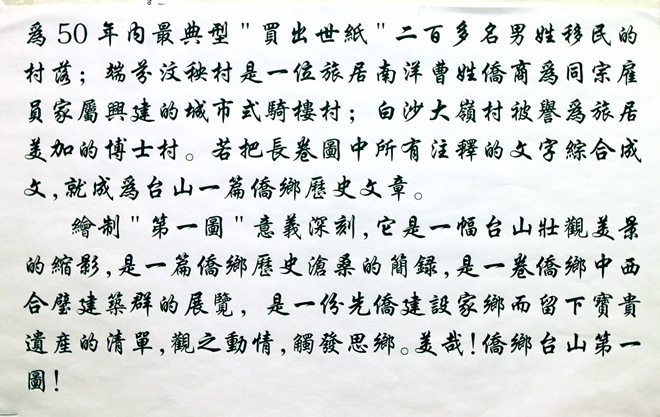 為50年內最典型"買出世紙"二百多名男姓移民的
村落；端芬汶秧村是一位旅居南洋曹姓僑商為同宗雇
員家屬興建的城市式騎樓村；白沙大嶺村被譽為旅居
美加的博士村。若把長卷圖中所有注釋的文字綜合成
文,就成為台山一篇僑鄉歷史文章。
繪制"第一圖"意義深刻,它是一幅台山壯觀美景
的縮影,是一篇僑鄉歷史滄桑的簡錄,是一卷僑鄉中西
合璧建築群的展覽，是一份先僑建設家鄉而留下寶貴
遺産的清單,觀之動情,觸發思鄉。美哉!僑鄉台山第一
圖!